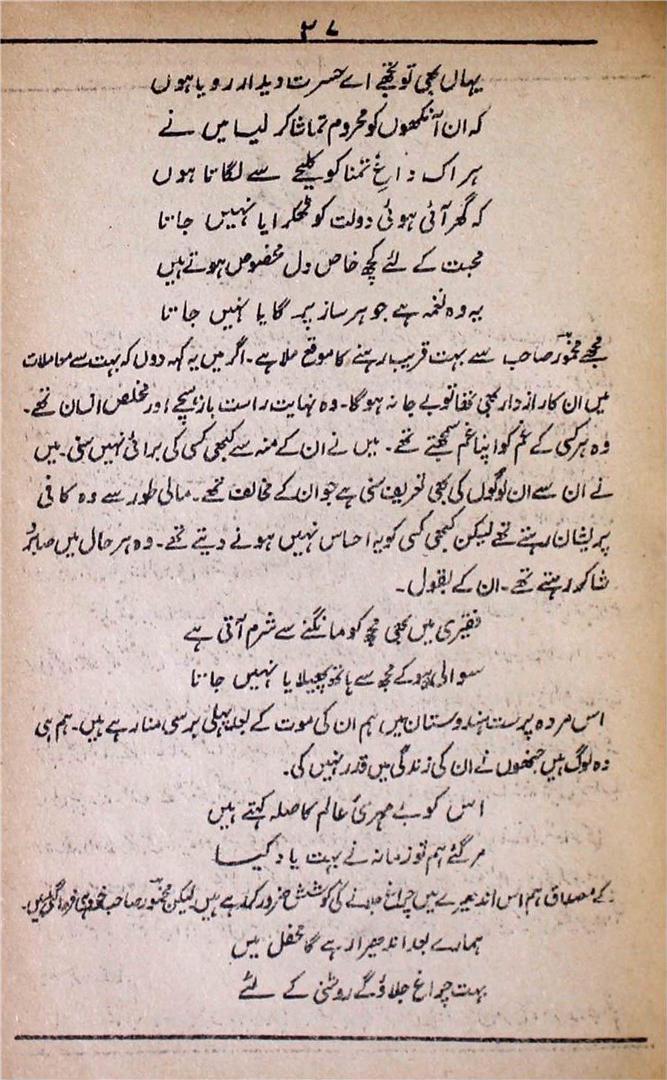 ۳۷
یہاں بھی تو تجھے اے حسرت دیدار رویا ہوں
کہ ان آنکھوں کو محروم تماشا کر لیا میں نے
ہر اک داغِ تمنا کو کلیجے سے لگاتا ہوں
کہ گھر آئی ہوئی دولت کو ٹھکرایا نہیں جاتا
محبت کے لئے کچھ خاص دل مخصوص ہوتے ہیں
یہ وہ نغمہ ہے جو ہر ساز پر گایا نہیں جاتا
مجھے مخمور صاحب سے بہت قریب رہنے کا موقع ملا ہے۔ اگر میں یہ کہہ دوں کہ بہت سے معاملات
میں ان کا رازدار بھی تھا تو بے جا نہ ہوگا۔ وہ نہایت راست باز، سچے اور مخلص انسان تھے۔
وہ ہر کسی کے غم کو اپنا غم سمجھتے تھے۔ میں نے ان کے منہ سے کبھی کسی کی برائی نہیں سنی۔ میں
نے ان سے ان لوگوں کی بھی تعریف سنی ہے جو ان کے مخالف تھے۔ مالی طور سے وہ کافی
پریشان رہتے تھے لیکن کبھی کسی کو یہ احساس نہیں ہونے دیتے تھے۔ وہ ہر حال میں صابر و
شاکر رہتے تھے۔ ان کے بقول۔
فقیری میں بھی مجھ کو مانگنے سے شرم آتی ہے
سوالی ہو کے مجھ سے ہاتھ پھیلایا نہیں جاتا
اس مردہ پرست ہندوستان میں ہم ان کی موت کے بعد پہلی برسی منا رہے ہیں۔ ہم ہی
وہ لوگ ہیں جنھوں نے ان کی زندگی میں قدر نہیں کی۔
اس کو بے مہریٔ عالم کا صلہ کہتے ہیں
مر گئے ہم تو زمانہ نے بہت یاد کیا
کے مصداق ہم اس اندھیرے میں چراغ جلانے کی کوشش ضرور کر رہے ہیں لیکن مخمور صاحب خود ہی فرما گئے ہیں۔
ہمارے بعد اندھیرا رہے گا محفل میں
بہت چراغ جلاؤ گے روشنی کے لئے